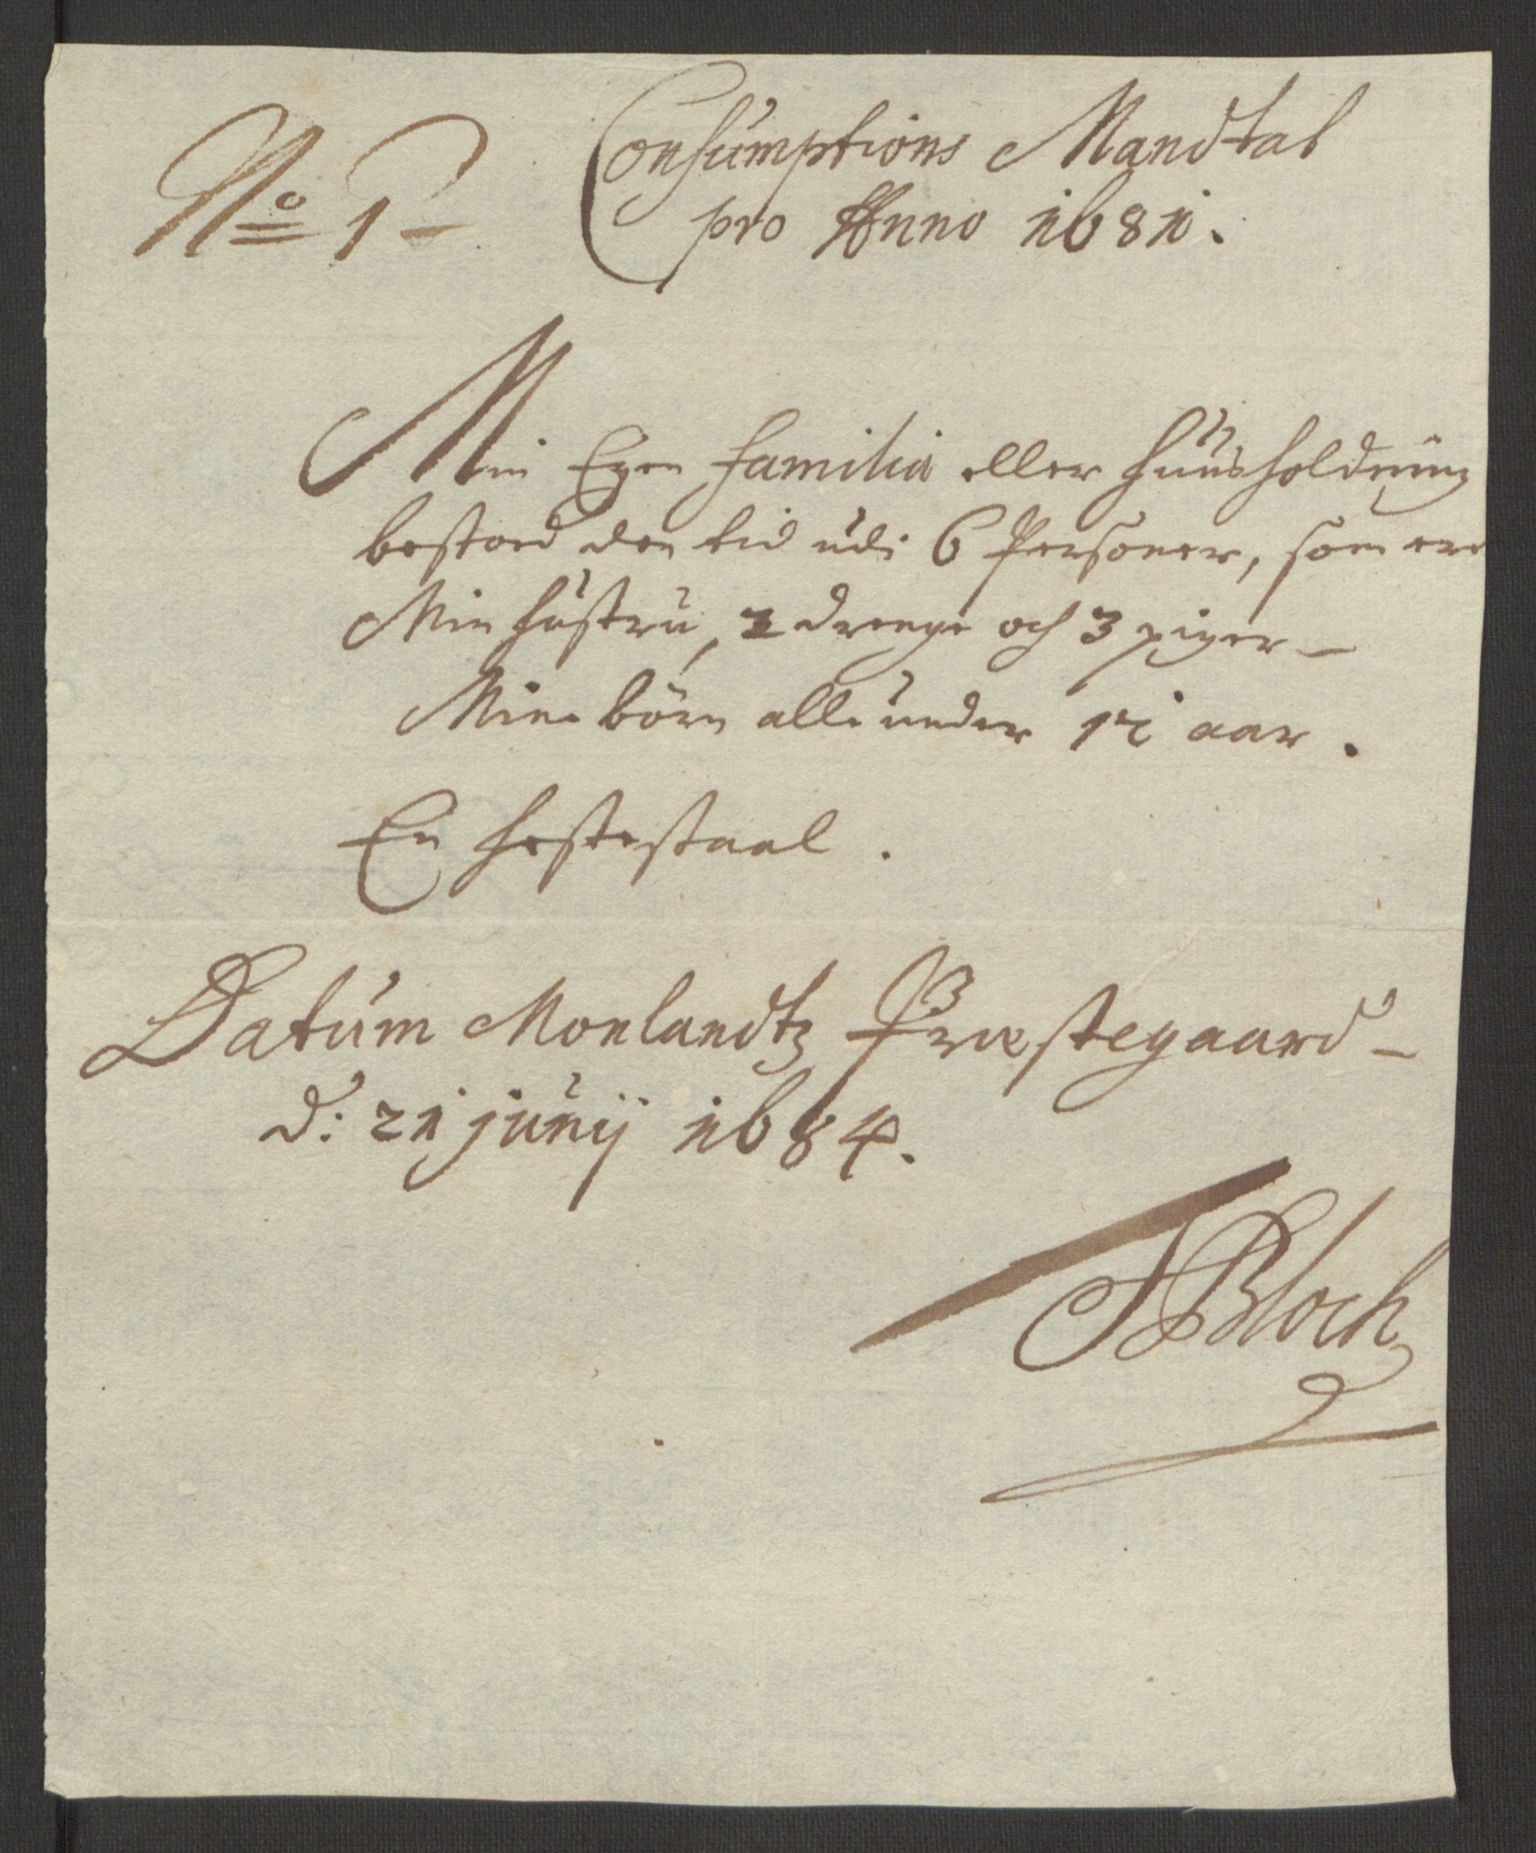 No 1
Consumptions Mandtal
pro Anno 1681.
Min Egen familia eller huusholdning
bestoed den tid udi 6 Personer, som ere
Min hustru, 2 drenge och 3 piger
Mine börn alle under 12 aar.
En hestestaal.
Datum Monlandtz Præstegaard
d: 21 junij 1684.
Bloch